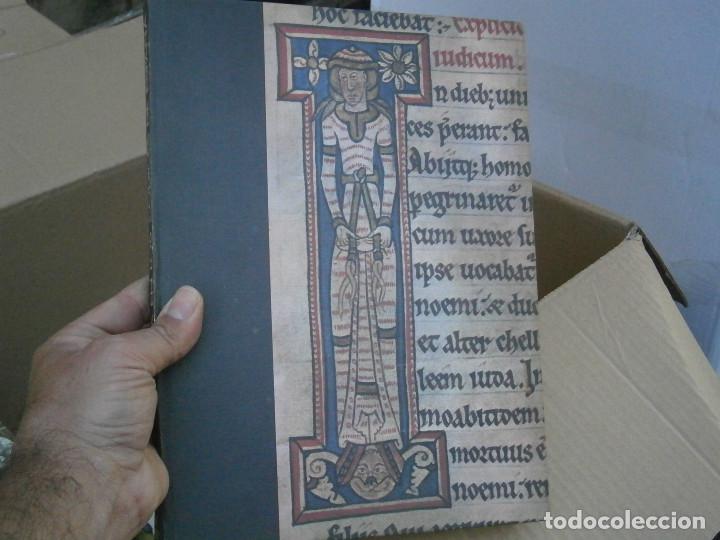 hoc faciebat: Explicit
iudicum.
In dieb; uni
ces p̄erant: fa
Abijtq; homo
pegrinaret᷑ i
cum uxore su
ipse uocabat᷑
noemi: & duo
et alter chell
leem iuda. In
moabitidem.
mortuus ē
noemi: rem
todocoleccion